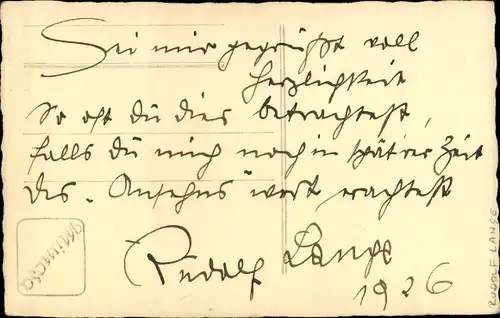 Sei mir gegrüßt voll
Herzlichkeit
So oft du dies betrachtest,
falls du mich noch in spät'rer Zeit
des "Ansehns" wert erachtest
Rudolf Lange
1926
RUDOLF LANGE